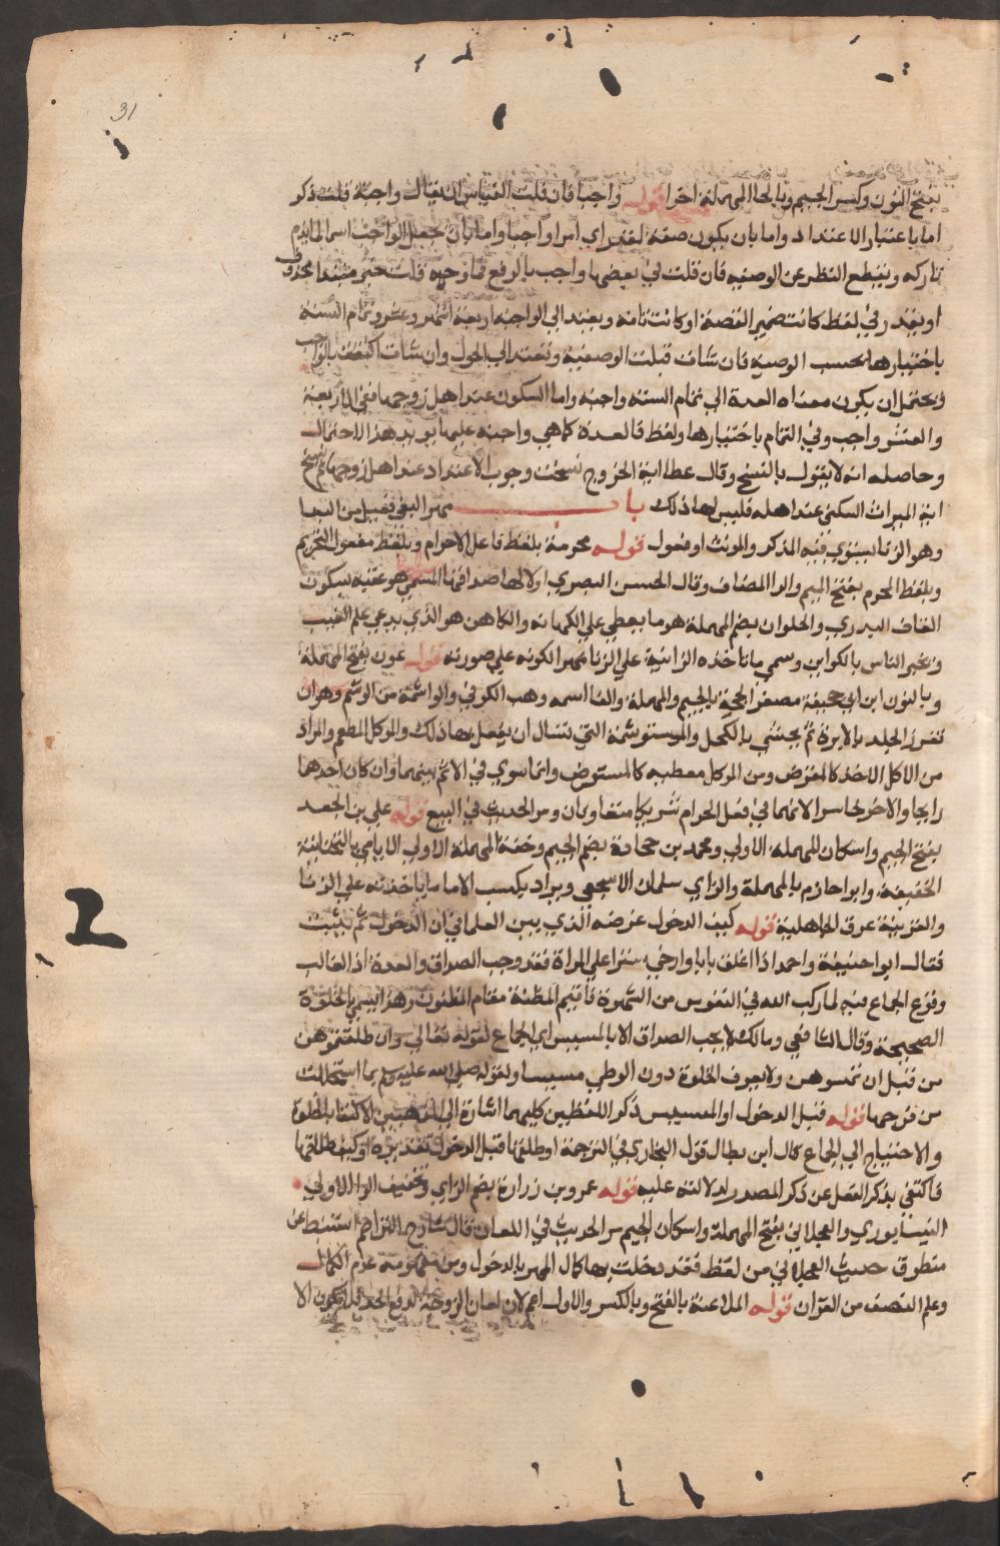 31
بفتح النون وكسر الجيم وبالحا المهملة اخرا قوله واجبا فان قلت القياس ان يقال واجبة قلت ذكر
اما باعتبار الاعتداد واما بان يكون صفة لمقدر اي امرا واجبا واما بان جعل الواجب اسم لما يذم
تاركه ويقطع النظر عن الوصفيه فان قلت في بعضها واجب بالرفع فما وجهه قلت خبر مبتدا محذوف
او يقدر في لفظ كانت ضمير القصة او كانت تامه ويعتد الي الواجبة اربعة اشهر وعشر وتمام السنة
باختيارها بحسب الوصية فان شات قبلت الوصية وتعتد الي الحول وان شات اكتفت بالواجب
ويحتمل ان يكون معناه العدة الي تمام السنه واجبه واما السكون عند اهل زوجها ففي الاربعة
والعشر واجب وفي التمام باختيارها ولفظ فالعدة كما هي واجبه عليها يويد هذا الاحتمال
وحاصله انه لا يقول بالنسخ وقال عطا اية الخروج نسخت وجوب الاعتداد عند اهل زوجها ثم نسخ
اية الميراث السكني عند اهله فليس لها ذلك باب مهر البغي فعيل من البغا
وهو الزنا يستوي فيه المذكر والمونث او فعول قوله محرمة بلفظ فاعل الاحرام وبلفظ مفعول التحريم
وبلفظ المحرم بفتح الميم والرا المضاف وقال الحسن البصري اولا لها صداقها المسمي هو عقبه بسكون
القاف البدري والحلوان بضم المهملة هو ما يعطي علي الكهانه والكاهن هو الذي يدعي علم الغيب
ويخبر الناس بالكواين وسمي ما تاخذه الزانية علي الزنا مهرا لكونه علي صورته قوله عون بفتح المهملة
وبالنون ابن ابي جحيفة مصغر الجحفة بالجيم والمهملة والفا اسمه وهب الكوفي والواشمة من الوشم وهو ان
تغرز الجلد بالابرة ثم يحشي بالكحل والمستوشمة التي تسال ان يفعل بها ذلك والموكل المطعم والمراد
من الاكل الاخذ كالمقرض ومن الموكل معطيه كالمستقرض وانما سوي في الاثم بينهما وان كان احدهما
رابحا والاخر خاسرا لانهما في فعل الحرام شريكا متعاونان ومر الحديث في البيع قوله علي بن الجعد
بفتح الجيم واسكان المهملة الاولي ومحمد بن جحادة بضم الجيم وخفة المهملة الاولي الايامي بالتحتانية
الخفيفة وابو حازم بالمهملة والزاي سلمان الاشجعي ويراد بكسب الاما ما ياخذنه علي الزنا
والقرينة عرف الجاهلية قوله كيف الدخول غرضه الذي بين العلما في ان الدخول بم يثبت
فقال ابو حنيفة واحمد اذا اغلق بابا وارخي سترا علي المراة فقد وجب الصداق والعدة اذ الغالب
وقوع الجماع فيه لما ركب الله في النفوس من الشهوة فاقيم المظنة مقام المظنون وهذا يسمي بالخلوة
الصحيحة وقال الشافعي ومالك لا يجب الصداق الا بالمسيس اي الجماع لقوله تعالي وان طلقتموهن
من قبل ان تمسوهن ولا يعرف الخلوة دون الوطي مسيسا ولقوله صلي الله عليه وسلم بما استحللت
من فرجها قوله قبل الدخول او المسيس ذكر اللفظين كليهما اشارة الي المذهبين الاكتفا بالخلوة
والاحتياج الي الجماع قال ابن بطال قول البخاري في الترجمة او طلقها قبل الدخول تقديره او كيف طلاقها
فاكتفي بذكر الفعل عن ذكر المصدر لدلالته عليه قوله عمرو بن زرارة بضم الزاي وتخفيف الرا الاولي
النيسابوري والعجلاني بفتح المهملة واسكان الجيم مر الحديث في اللعان قال شارح التراجم استنبط من
منطوق حديث العجلاني من لفظ فقد دخلت بها كمال المهر بالدخول ومن مفهومه عدم الكمال
وعلم النصف من القران قوله الملاعنة بالفتح وبالكسر والاول اعم لان لعان الزوجة لدفع الحد فلا يكون الا